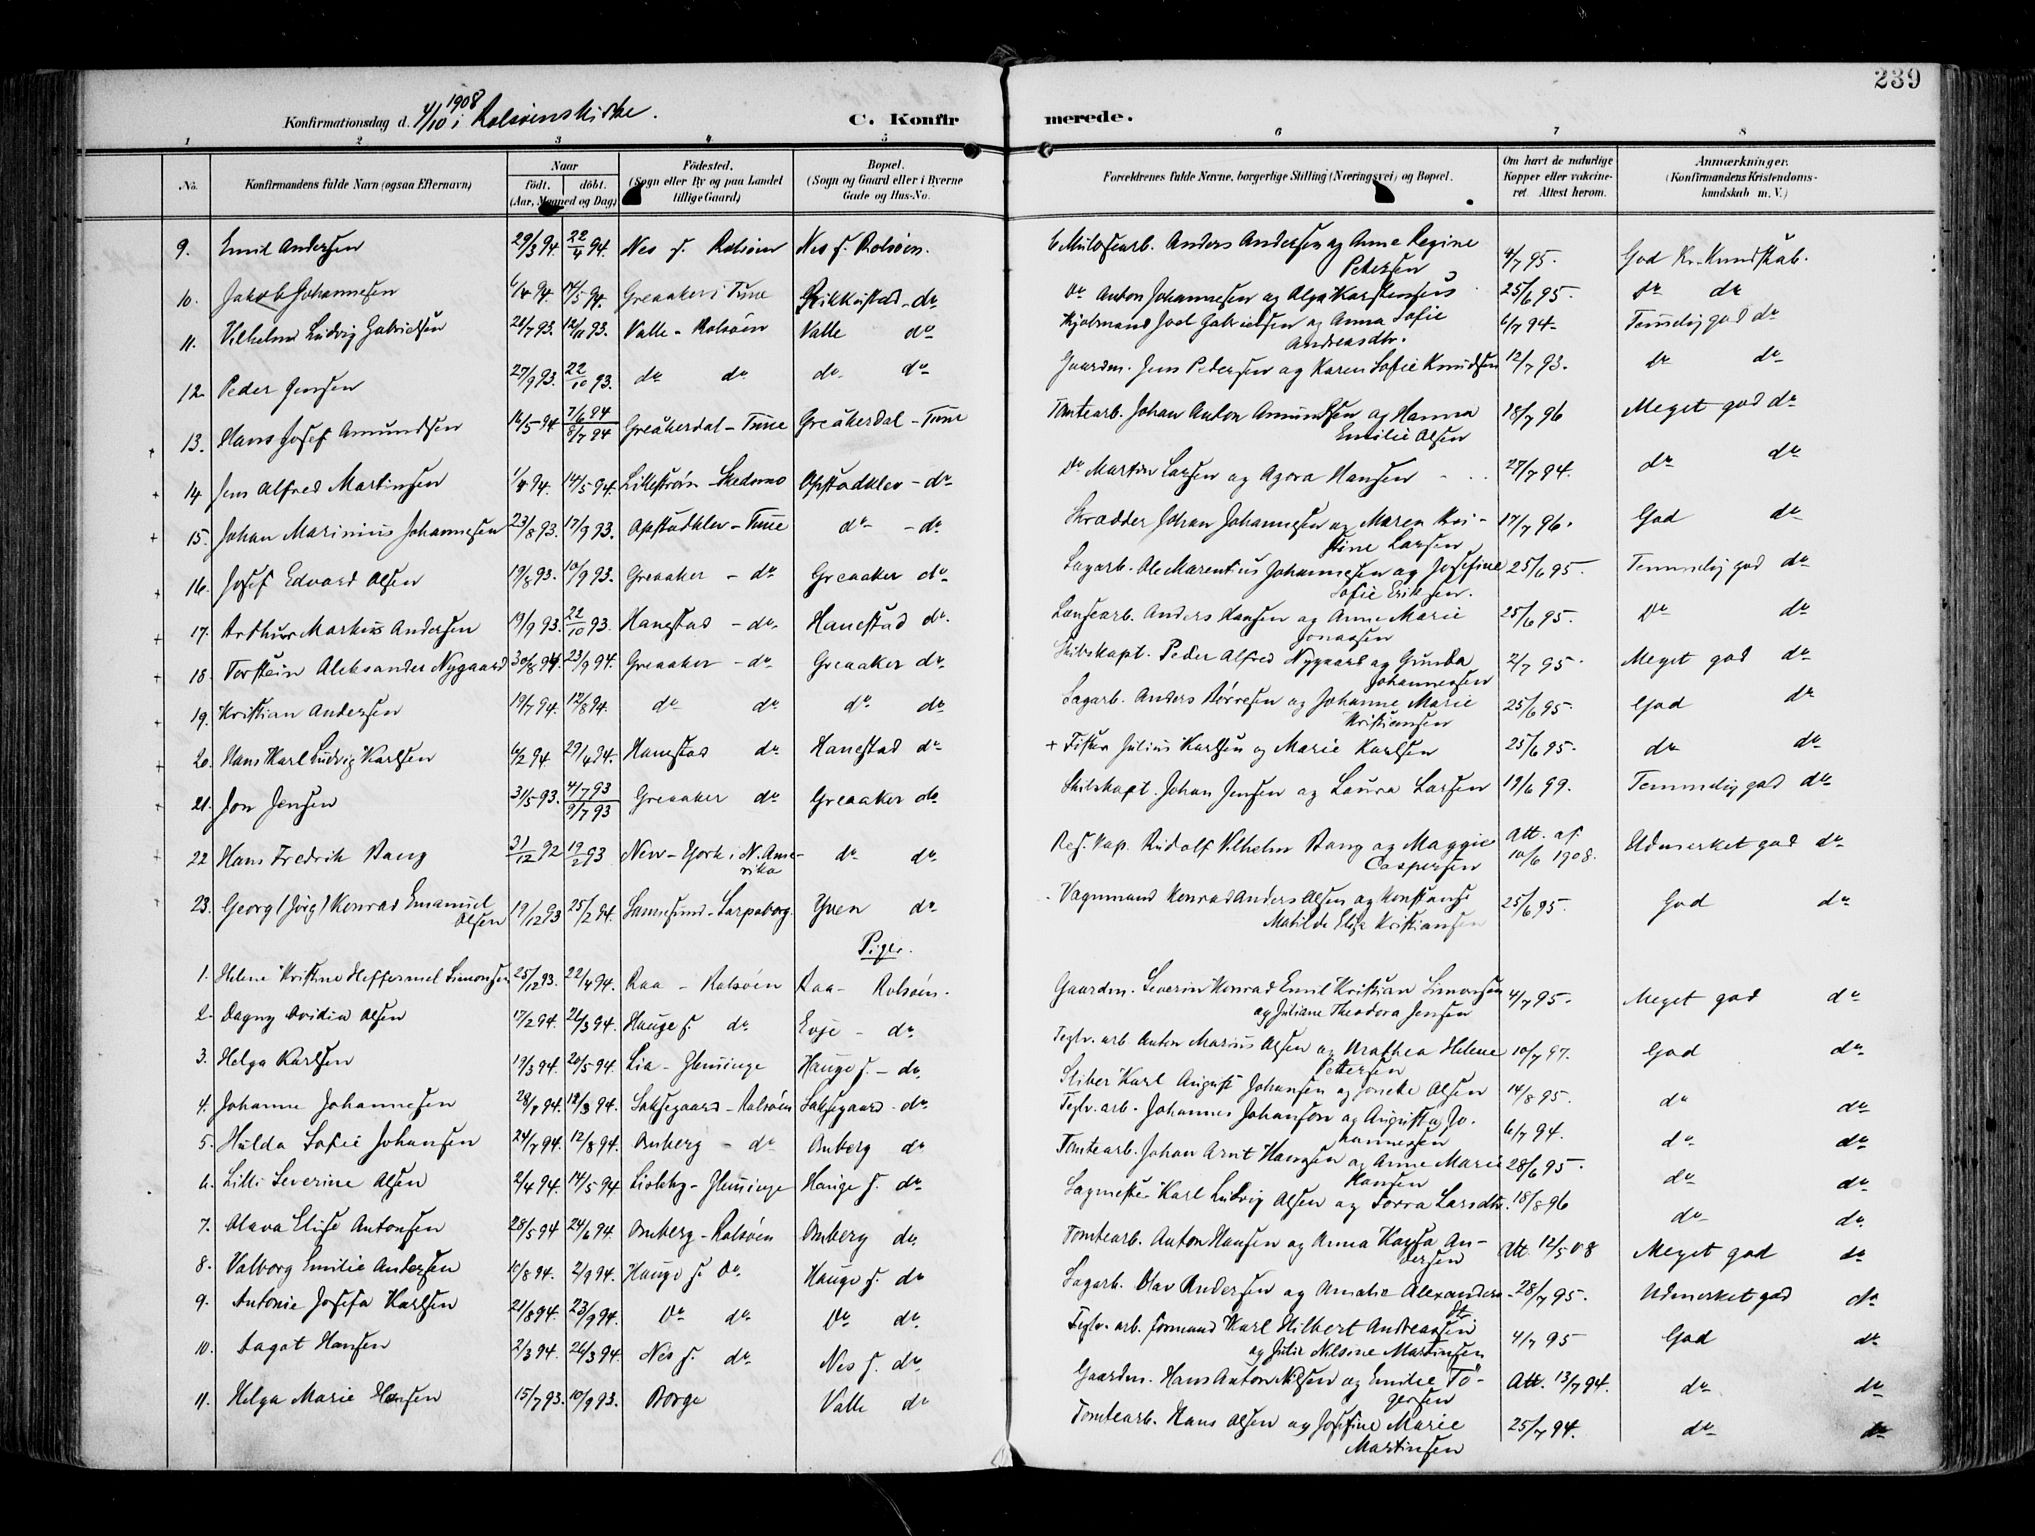 239
Konfirmationsdag d. 4/10 1908 i Rolsøenskirke.
C. Konfirmerede.
1 2 3 4 5 6 7 8
No. Konfirmandens fulde Navn (ogsaa Efternavn) Naar født. døbt. (Aar, Maaned og Dag) Fødested. (Sogn eller By og paa Landet tillige Gaard) Bopæl. (Sogn og Gaard eller i Byerne Gade og Hus-No. Forældrenes fulde Navne, borgerlige Stilling (Næringsvei) og Bopæl. Om havt de naturlige Kopper eller vakcineret. Attest herom. Anmærkninger. (Konfirmandens Kristendomskundskab m. V.)
9. Emil Andersen 29/3 94. 22/4 94. Nes s. Rolsøen Nes s. Rolsøen. Anders Andersen og Anne Regine Petersen 4/7 95. God Kr. Kundskab.
10. Jakob Johannesen 6/4 94. 14/5 94. Greaaker i Tune Rikkestad - do do Anton Johannesen og Olga Karstensens 25/6 95. do do
11. Vilhelm Ludvig Gabrielsen 21/7 93. 12/11 93. Valle - Rolsøen Valle do Joel Gabrielsen og Anna Sofie Andreasdtr. 6/7 94 - Temmelig god do
12. Peder Jensen 27/9 93. 22/10 93. do do do do Gaardm. Jens Pedersen og Karen Sofie Knudsen 12/7 93. do do
13. Hans Josef Amundsen 14/5 94 7/6 94 8/7 94 Greåkerdal - Tune Greåkerdal - Tune Tomtearb. Johan Anton Amundsen og Hanna Emilie Olsen 18/7 96 Meget god do
14 Jens Alfred Martinsen 1/4 94. 14/5 94. Lillestrøm - Skedsmo Opstadklev - do do Martin Larsen og Agora Hansen 27/7 94. do do
15. Johan Marinius Johannesen 23/8 93. 17/9 93. Opstadklev - Tune do - do Skrædder Johan Johannesen og Maren Kristine Larsen 17/7 96. God do
16. Josef Edvard Olsen 19/8 93. 10/9 93. Greaaker - do Greaaker do Sagarb. Ole Marentius Johannesen og Josefine Sofie Eriksen. 25/6 95. Temmelig god do
17. Arthur Markus Andersen 19/9 93. 22/10 93. Hanestad - do. Hanestad do. Lænsearb. Anders Hansen og Anne Marie Jonassen 25/6 95. Do do
18. Torstein Aleksander Nygaard 30/8 94 23/9 94. Greaaker - do. Greaaker do. Skibskapt. Peder Alfred Nygaard og Gunda Johannessen 2/7 95. Meget god do
19. Kristian Andersen 19/7 94. 12/8 94. do do do do Sagarb. Anders Børresen og Johanne Marie Kristiansen 25/6 95. God do
20. Hans Karl Ludvig Karlsen 6/2 94 29/4 94. Hanestad do Hanestad do + Fisker Julius Karlsen og Marie Karlsen 25/6 95. do do
21. Jon Jensen 31/5 93. 4/7 93 9/7 93 Greaaker do Greaaker do Skibskapt. Johan Jensen og Laura Larsen 19/6 99. Temmelig god do
22 Hans Fredrik Bang 31/12 92 19/2 93 New-York i N. Amerika do do Kap. Rudolf Vilhelm Bang og Maggie Caspersen Att. af 10/6 1908. Udmerket god do
23. Georg (Jørg) Konrad Emanuel Olsen 19/12 93 25/2 94. Sannesund - Sarpsborg. Yven do Vognmand Konrad Anders Olsen og Konstance Matilde Elise Kristiansen 25/6 95. God do
Piger.
1. Helene Kristine Heffermel Simonsen 25/12 93. 22/4 94. Raa - Rolsøen Raa - Rolsøen. Gaardm. Severin Konrad Emil Kristian Simonsen og Juliane Theodora Jensen 4/7 95. Meget god do
2. Dagny Ovidia Olsen 17/2 94. 26/3 94. Hauge s. do Evje - do. Teglv. arb. Anton Marius Olsen og Mathea Helene Pettersen 10/7 97. God do
3. Helga Karlsen 19/3 94. 20/5 94. Lia - Glemminge Hauge s. - do. Sliber Karl August Johansen og Olsen 14/8 95. do do
4. Johanne Johannesen 28/1 94. 18/3 94. Saksegaard - Rolsøen Saksegaard - do. Teglv. arb. Johannes Johanson og Augusta Johannesen 6/7 94. do do
5. Hulda Sofie Johansen 24/7 94. 12/8 94. Omberg - do Omberg do Tomtearb. Johan Arnt Hansen og Anne Marie Hansen 28/6 95. do do
6. Lilli Severine Olsen 2/4 94. 14/5 94 Lisleby - Glemminge Hauge s. do Sagmester Karl Ludvig Olsen og Torra Larsdtr. 18/8 96 do do
7. Olava Elise Antonsen 28/5 94 24/6 94. Omberg - Rolsøen Omberg do. Tomtearb. Anton Hansen og Anna Kaysa Andersen Att. 12/5 08 Meget god do
8. Valborg Emilie Andersen 10/8 94. 2/9 94. Hauge s. Do. Hauge s. do Sagarb. Olav Andersen og Amalie Alexandersdtr 28/7 95. Udmerket god do
9. Antonie Josefa Karlsen 21/8 94. 23/9 94. Do do Do do. Teglv. arb. formand Karl Hilbert Andreassen og Julie Nilsine Martinsen 4/7 95 God do
10. Aagot Hansen 2/3 94. 26/3 94. Nes s. do. Nes s. do. Gaardm. Hans Anton Nilsen og Emilie Tögersen Att. 13/7 94. do do
11. Helga Marie Hansen 15/7 93. 10/9 93. Borge Valle do Tomtearb. Hans Olsen og Josefine Marie Martinsen 25/7 94. do do